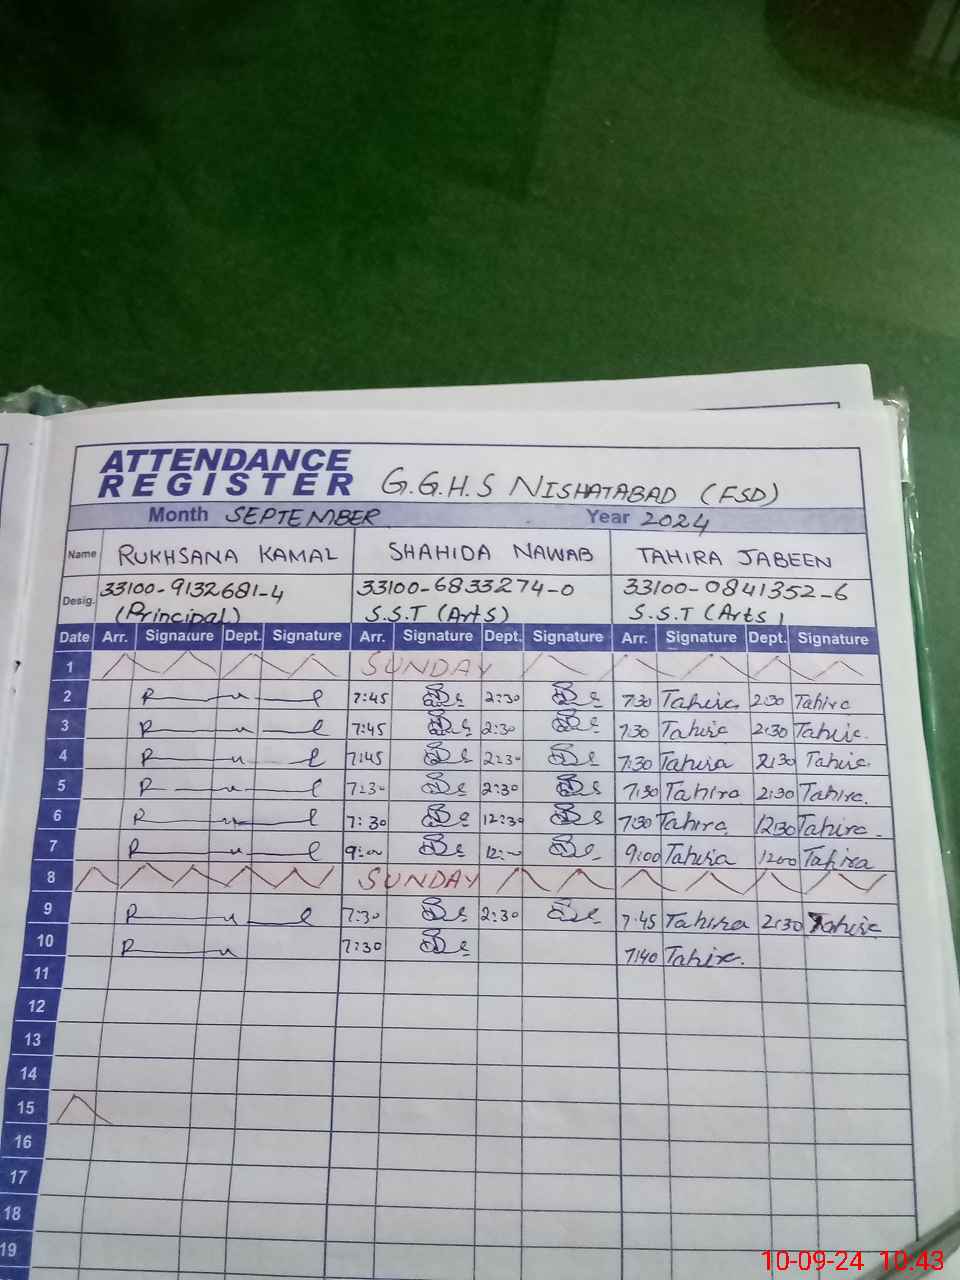 ATTENDANCE
REGISTER G.G.H.S NISHATABAD (FSD)
Month SEPTEMBER Year 2024
Name RUKHSANA KAMAL SHAHIDA NAWAB TAHIRA JABEEN
Desig. 33100-9132681-4 33100-6833274-0 33100-0841352-6
(Principal) S.S.T (Arts) S.S.T (Arts)
Date Arr. Signature Dept. Signature Arr. Signature Dept. Signature Arr. Signature Dept. Signature
1 SUNDAY
2 7:45 2:30 7:30 Tahira 2:30 Tahira
3 7:45 2:30 7:30 Tahira 2:30 Tahira.
4 7:45 2:30 7:30 Tahira 2:30 Tahira.
5 7:30 2:30 7:30 Tahira 2:30 Tahira.
6 7:30 12:30 7:30 Tahira 12:30 Tahira.
7 9:00 12:00 9:00 Tahira 12:00 Tahira
8 SUNDAY
9 7:30 2:30 7:45 Tahira 2:30 Tahira
10 7:30 7:40 Tahira.
11
12
13
14
15
16
17
18
19
10-09-24 10:43